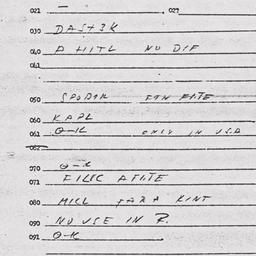 021 — 027
030 DAST3K
040 A HITL NO DIF
041
050 SPODIK FTN FITE
060 KAPL
061 O-K ONLY IN USA
062
070 O-K
071 FILEC ATITE
080 MILL TARA KINT
090 NO USE IN R.
091 O-K